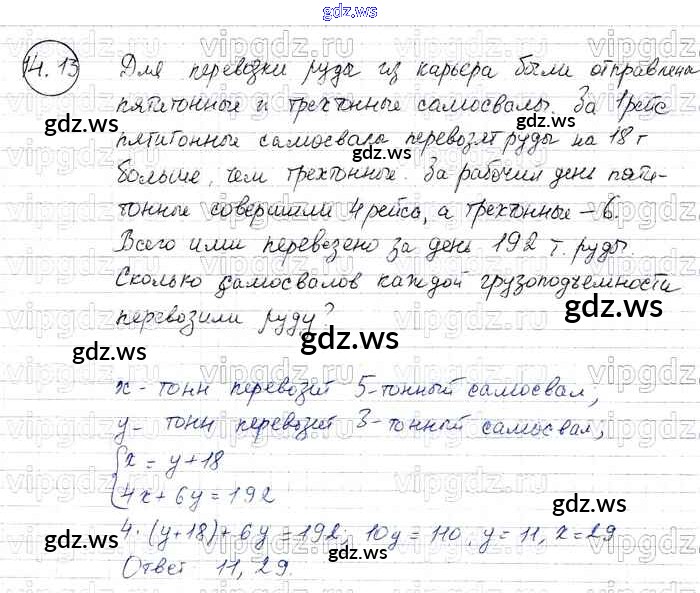 gdz.ws
14.13 Для перевозки руды из карьера были отправлены
пятитонные и трехтонные самосвалы. За 1 рейс
пятитонные самосвалы перевозят руды на 18 т
больше, чем трехтонные. За рабочий день пяти-
тонные совершили 4 рейса, а трехтонные – 6.
Всего ими перевезено за день 192 т. руды.
Сколько самосвалов каждой грузоподъемности
перевозили руду?
x - тонн перевозит 5-тонный самосвал;
y - тонн перевозит 3-тонный самосвал;
{ x = y + 18
{ 4x + 6y = 192
4·(y+18) + 6y = 192; 10y = 110, y = 11, x = 29
Ответ 11, 29.
gdz.ws
gdz.ws
gdz.ws
gdz.ws
gdz.ws
gdz.ws
gdz.ws
gdz.ws
gdz.ws